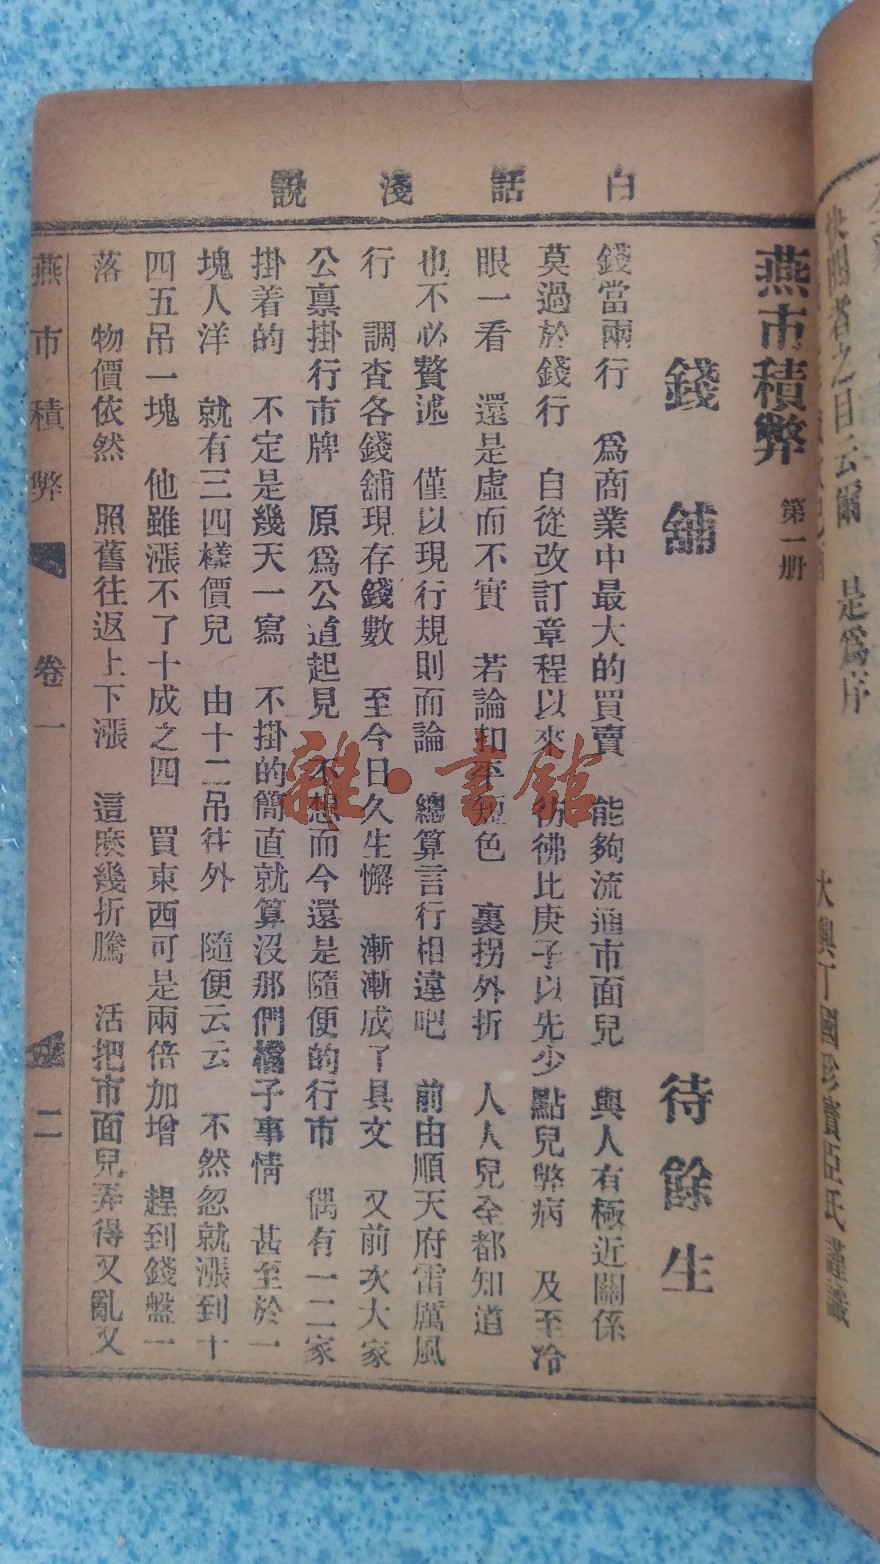 白話淺說
燕市積弊 第一册
錢舖 待餘生
錢當兩行 爲商業中最大的買賣 能夠流通市面兒 與人有極近關係
莫過於錢行 自從改訂章程以來 彷彿比庚子以先少點兒弊病 及至冷
眼一看 還是虛而不實 若論扣平短色 裏拐外折 人人兒全都知道
也不必贅述 僅以現行規則而論 總算言行相違吧 前由順天府雷厲風
行 調查各錢舖現存錢數 至今日久生懈 漸漸成了具文 又前次大家
公稟掛行市牌 原爲公道起見 不想而今還是隨便的行市 偶有一二家
掛着的 不定是幾天一寫 不掛的簡直就算沒那們檔子事情 甚至於一
塊人洋 就有三四樣價兒 由十二吊往外 隨便云云 不然忽就漲到十
四五吊一塊 他雖漲不了十成之四 買東西可是兩倍加增 趕到錢盤一
落 物價依然 照舊往返上下漲 這麽幾折騰 活把市面兒弄得又亂又
燕市積弊 卷一 二
雜·書館
快覩者之目云爾 是爲序
大興丁國珍賓臣氏謹識